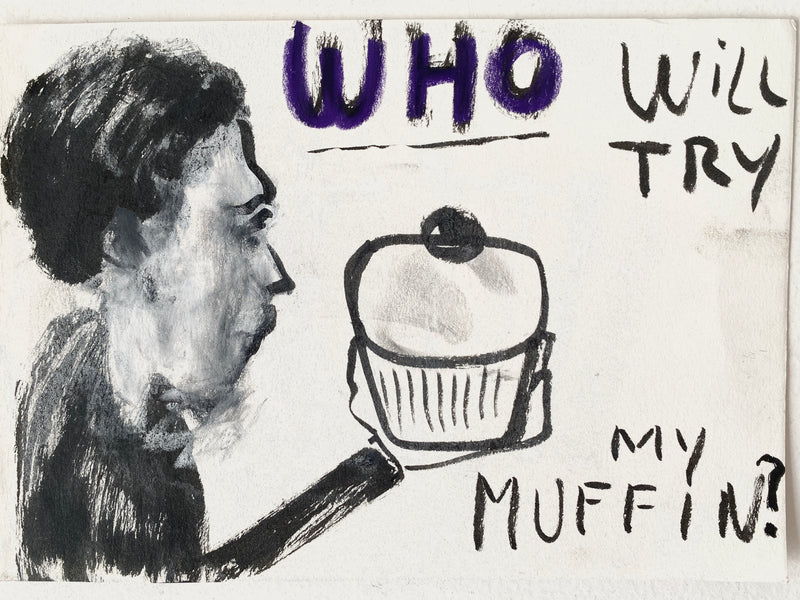 WHO WiLL
TRY
MY
MUFFIN?